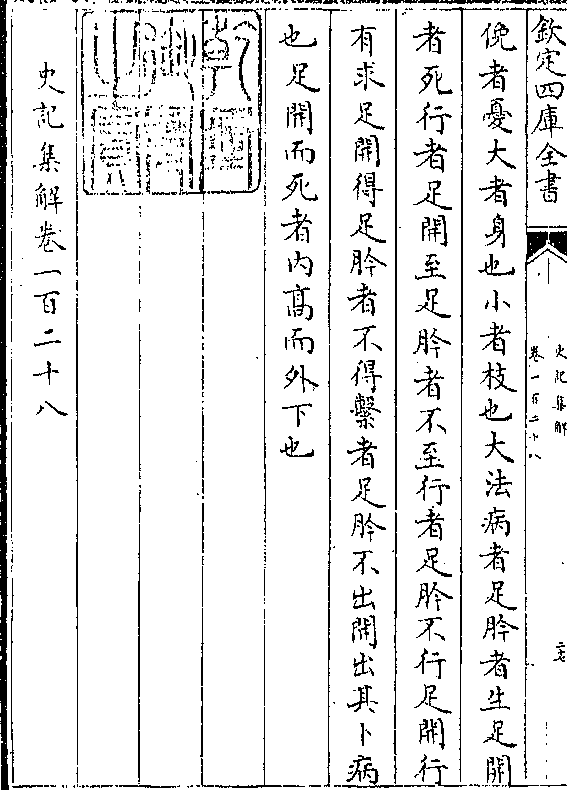 欽定四庫全書
史記集解
卷一百二十八
俛者憂大者身也小者枝也大法病者足肣者生足開
者死行者足開至足肣者不至行者足肣不行足開行
有求足開得足肣者不得繫者足肣不出開出其卜病
也足開而死者内髙而外下也
史記集解卷一百二十八